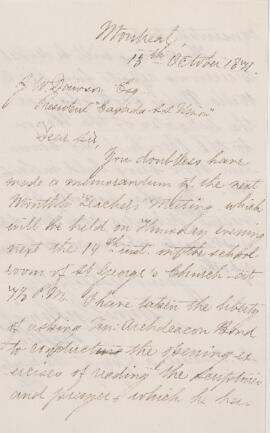 Montreal,
13th October 1871.
J. W. Dawson Esq.
President "Canada S.S. Union"
Dear Sir,
You doubtless have
made a memorandum of the next
Monthly Teachers Meeting which
will be held on Thursday evening
next the 19th inst. in the school
room of St George's Church at
7½ P.M. I have taken the liberty
of asking Archdeacon Bond
to conduct the opening ex-
ercises of reading the Scriptures
and prayer, which he has